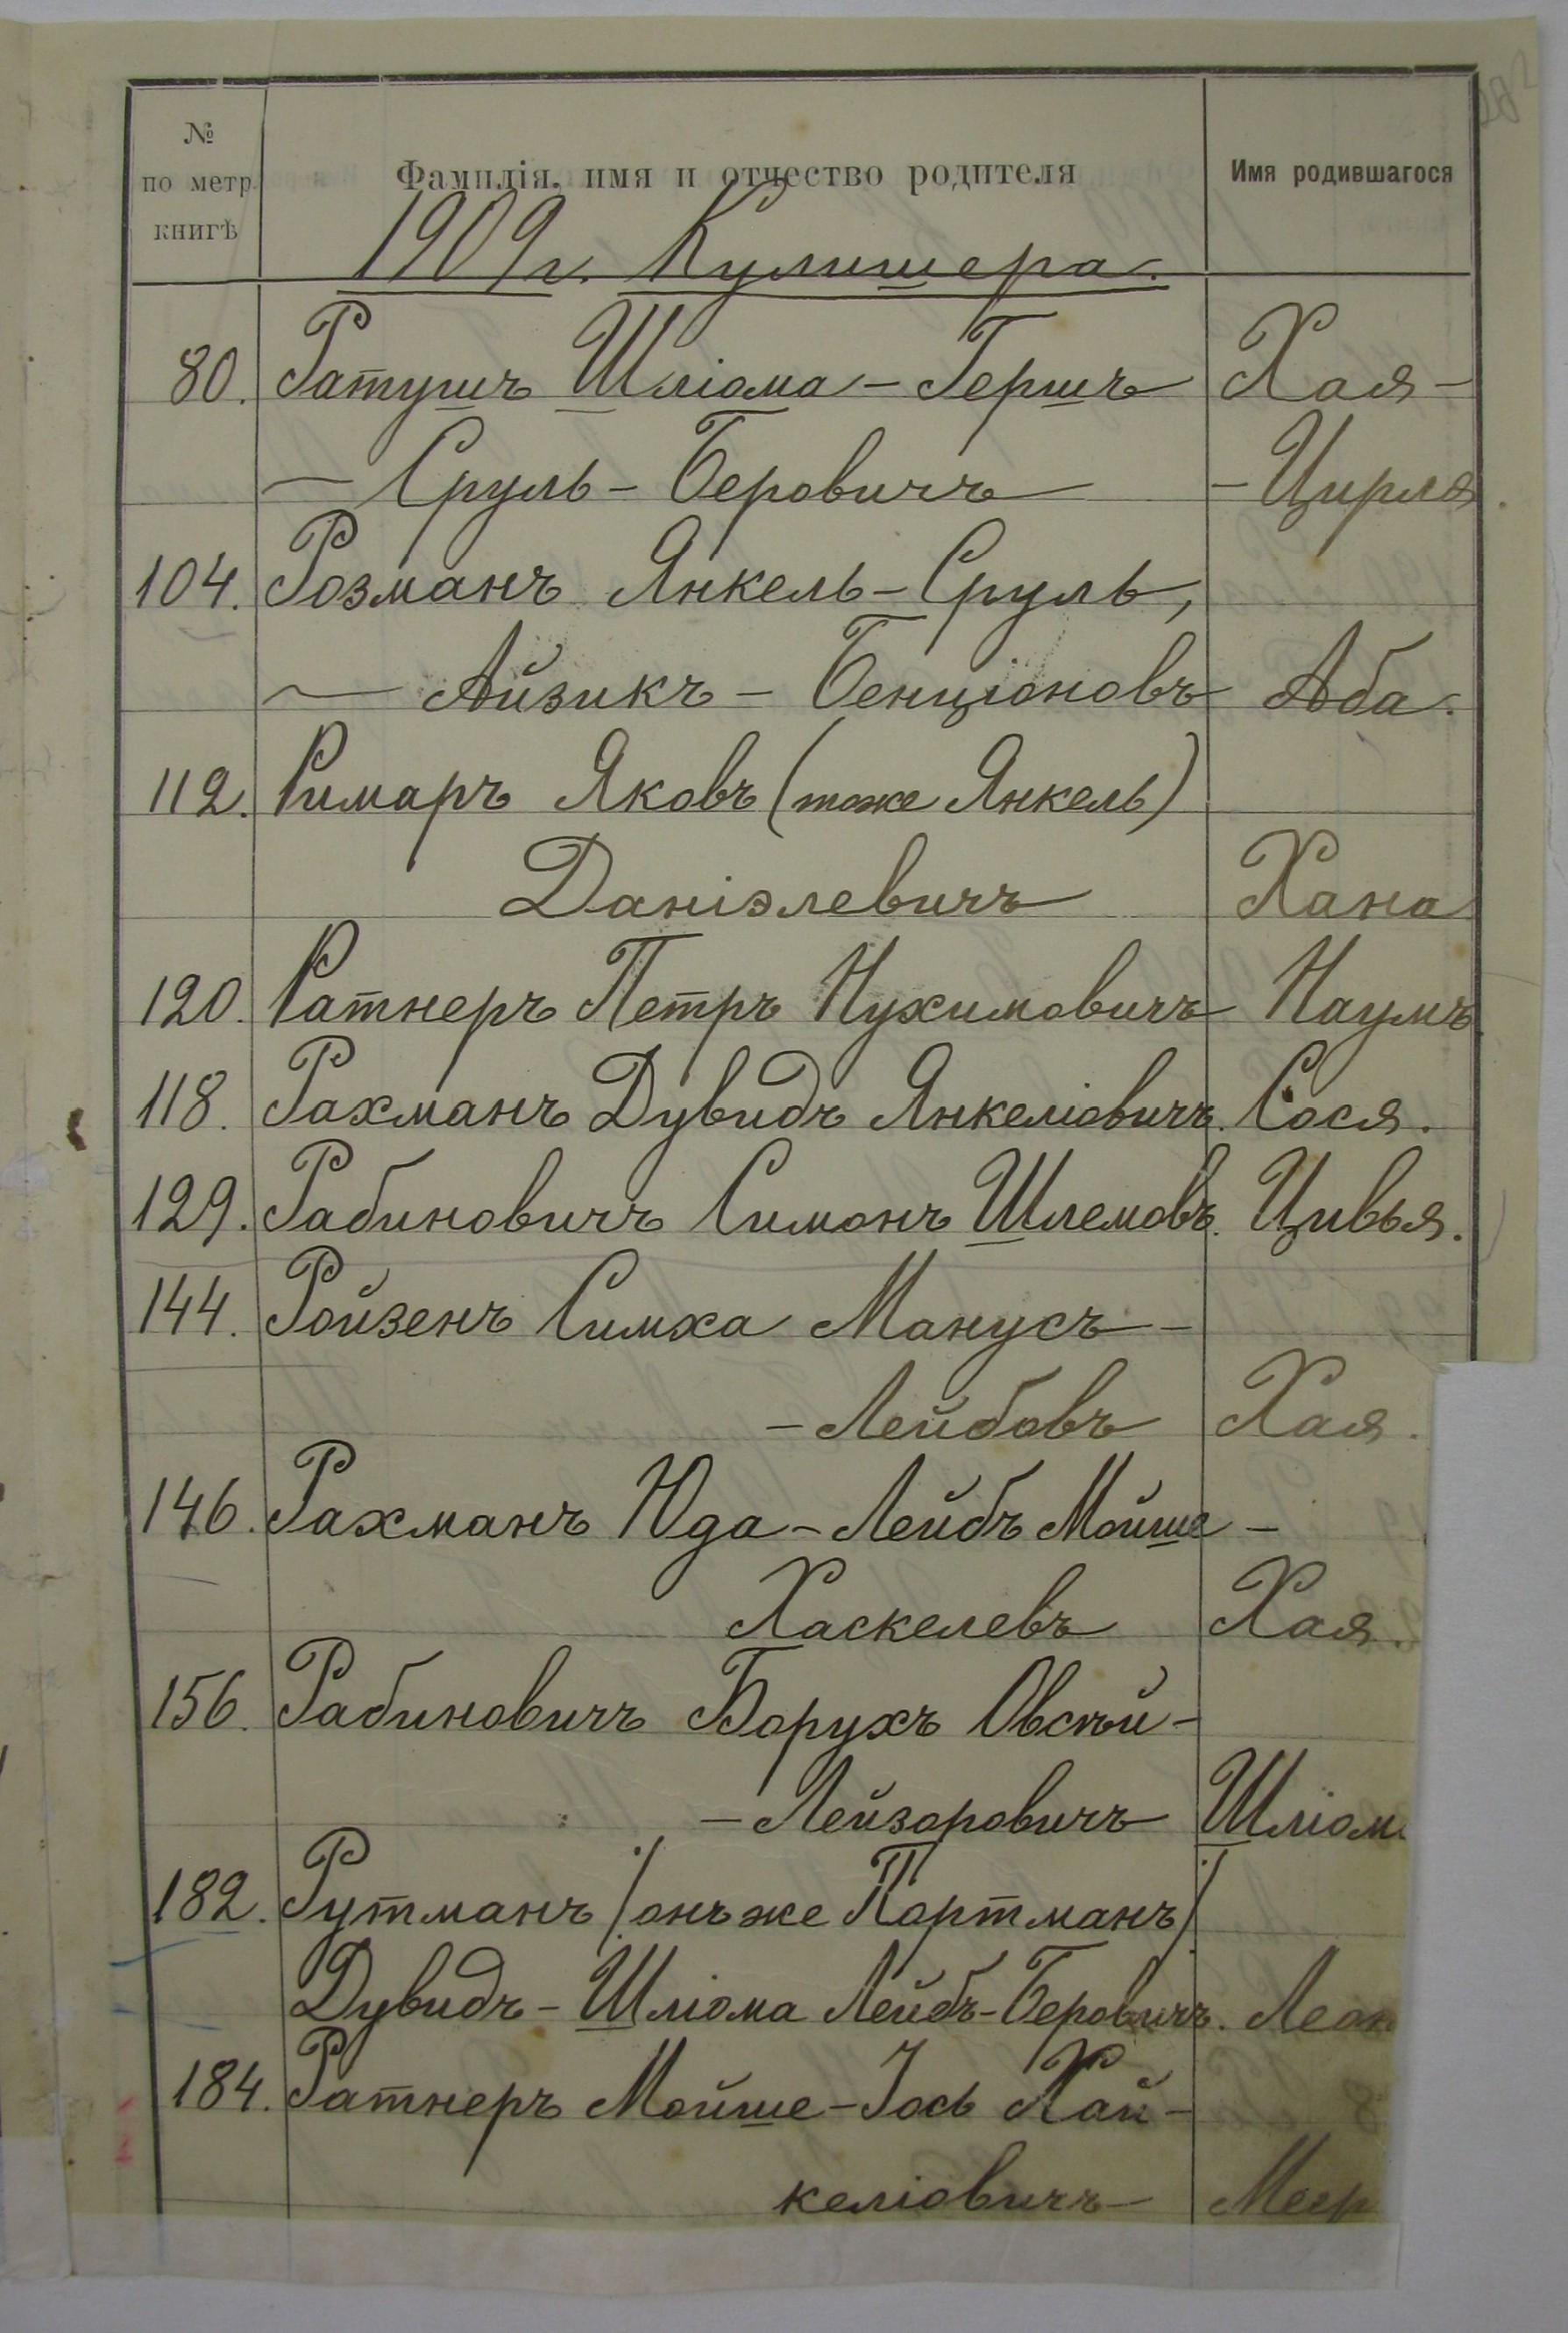 № по метр. книгѣ Фамилія, имя и отчество родителя Имя родившагося
1909 г. Кулишера.
80. Ратушъ Шліома - Гершъ Хая -
- Сруль - Беровичъ - Цирля.
104. Розманъ Янкель - Сруль,
- Айзикъ - Бенціоновъ Аба.
112. Римаръ Яковъ (тоже Янкель)
Даніэлевичъ Хана
120. Ратнеръ Петръ Нухимовичъ Наумъ.
118. Рахманъ Дувидъ Янкеліовичъ. Сося.
129. Рабиновичъ Симонъ Шлемовъ. Цивья.
144. Ройзенъ Симха Манусъ -
- Лейбовъ Хая.
146. Рахманъ Юда - Лейбъ Мойше -
Хаскелевъ Хая.
156. Рабиновичъ Борухъ Овсѣй -
- Лейзоровичъ Шліом
182. Рутманъ /онъ же Портманъ/
Дувидъ - Шліома Лейбъ - Беровичъ. Леон
184. Ратнеръ Мойше - Іось Хай -
келіовичъ Меер